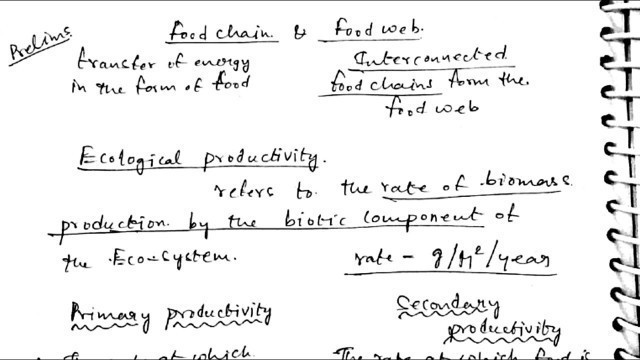 Prelims
food chain & food web.
transfer of energy in the form of food
Interconnected food chains form the food web
Ecological productivity.
refers to the rate of biomass
production by the biotic component of
the Eco-system.
rate - g/M²/year
Primary productivity
Secondary productivity
at which
The rate at which food is